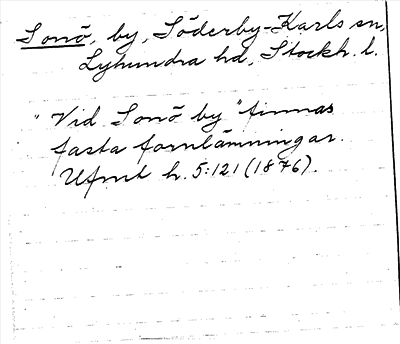 Sonö, by, Söderby-Karls sn,
Lyhundra hd, Stockh. l.
"Vid Sonö by" finnas
fasta fornlämningar.
Ufmt h. 5:121 (1876).